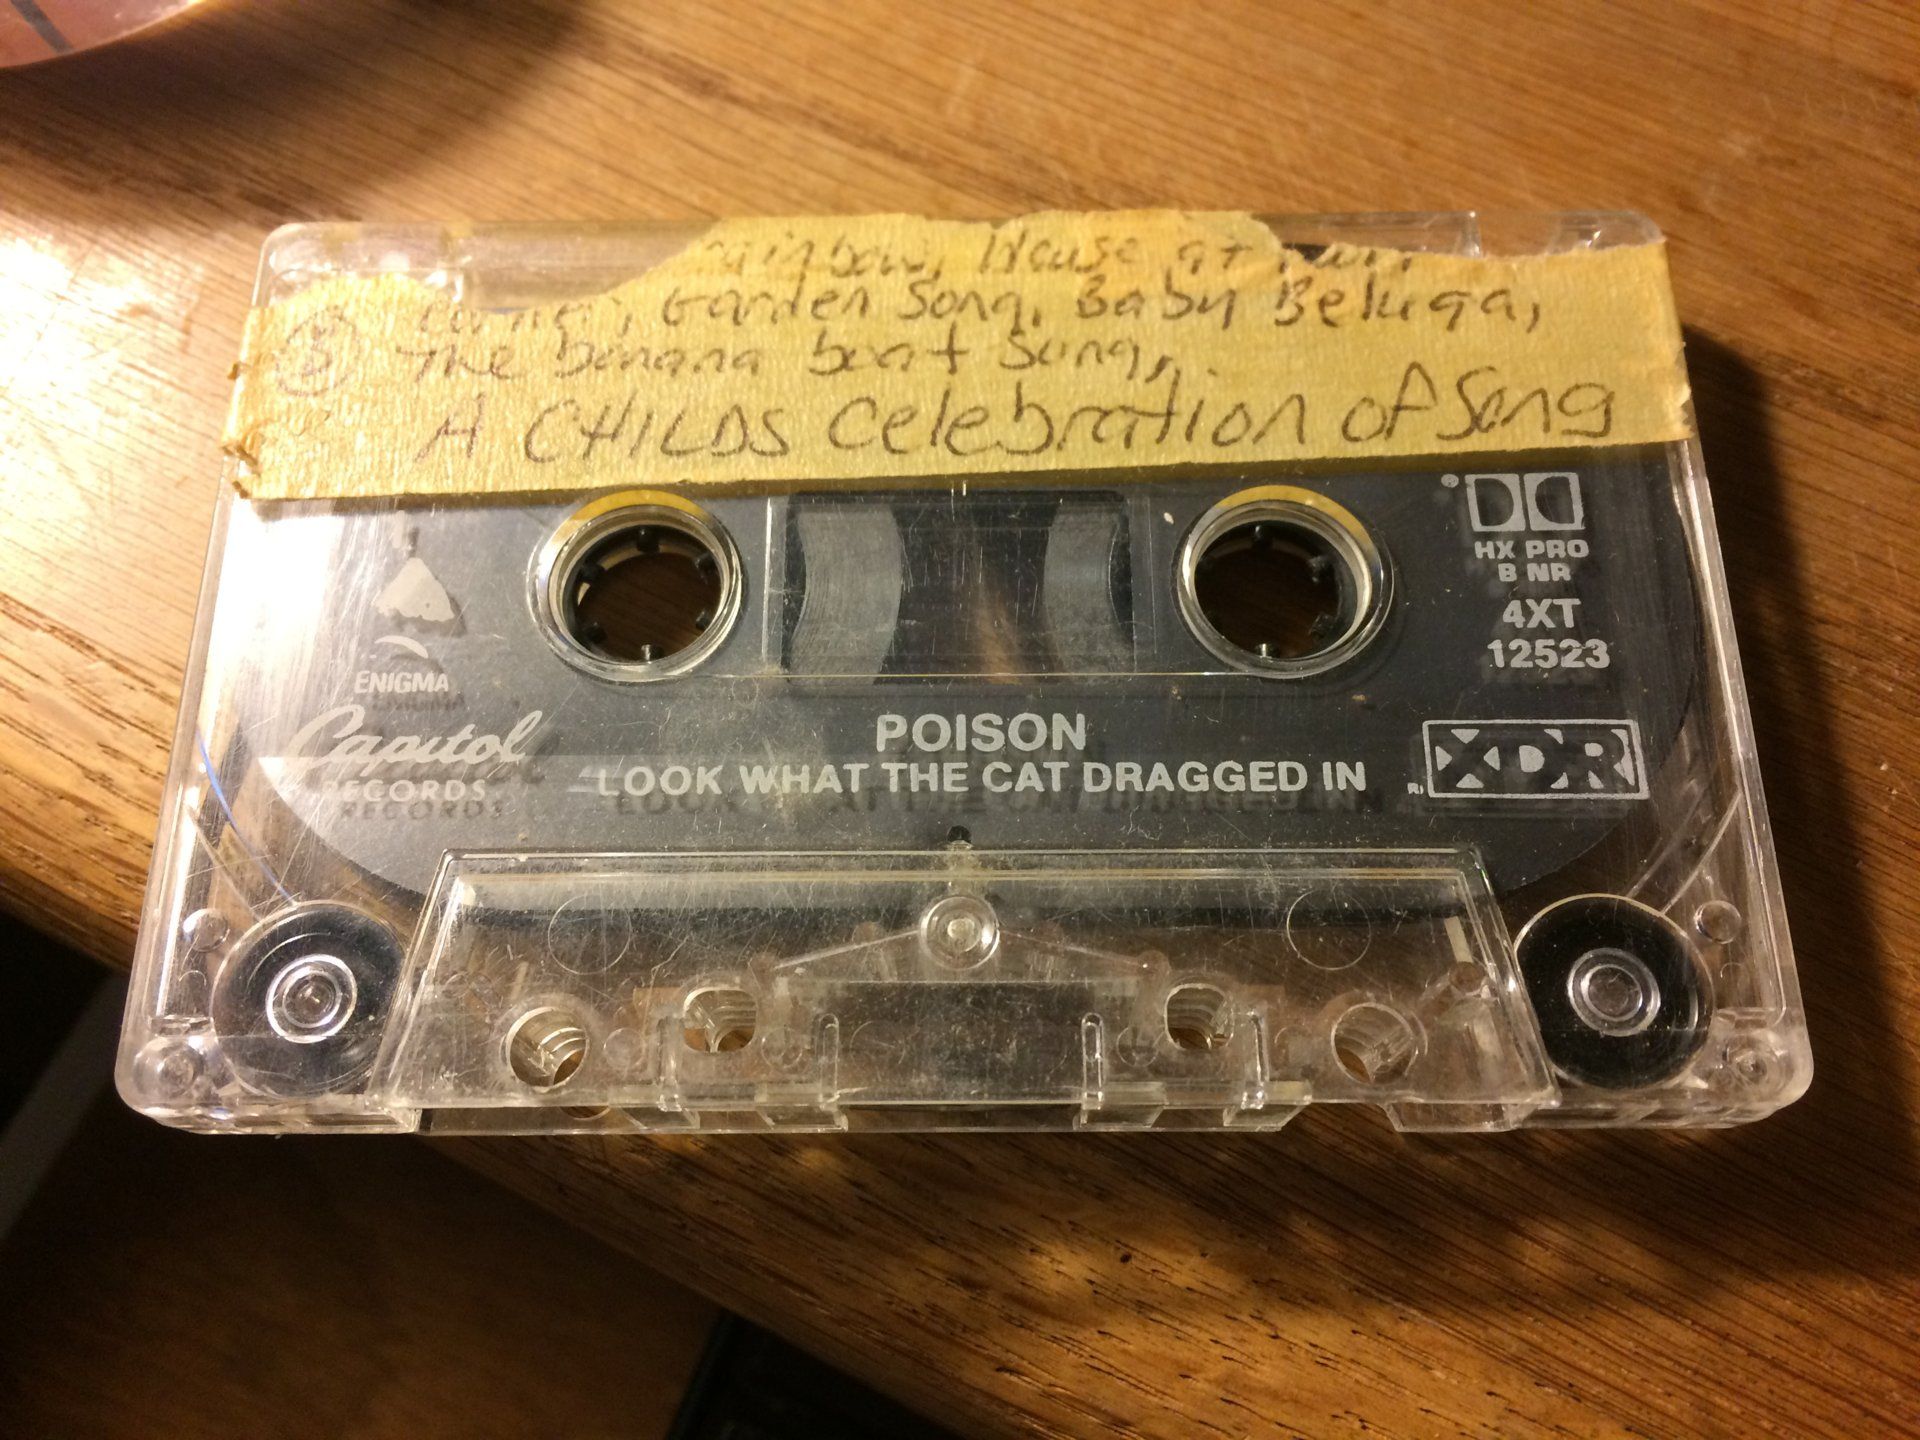 rainbow, House at
Corner, Garden Song, Baby Beluga,
The banana boat Song,
A CHILDS Celebration of Song
HX PRO
B NR
4XT
12523
ENIGMA
Capitol
RECORDS
POISON
LOOK WHAT THE CAT DRAGGED IN
XDR